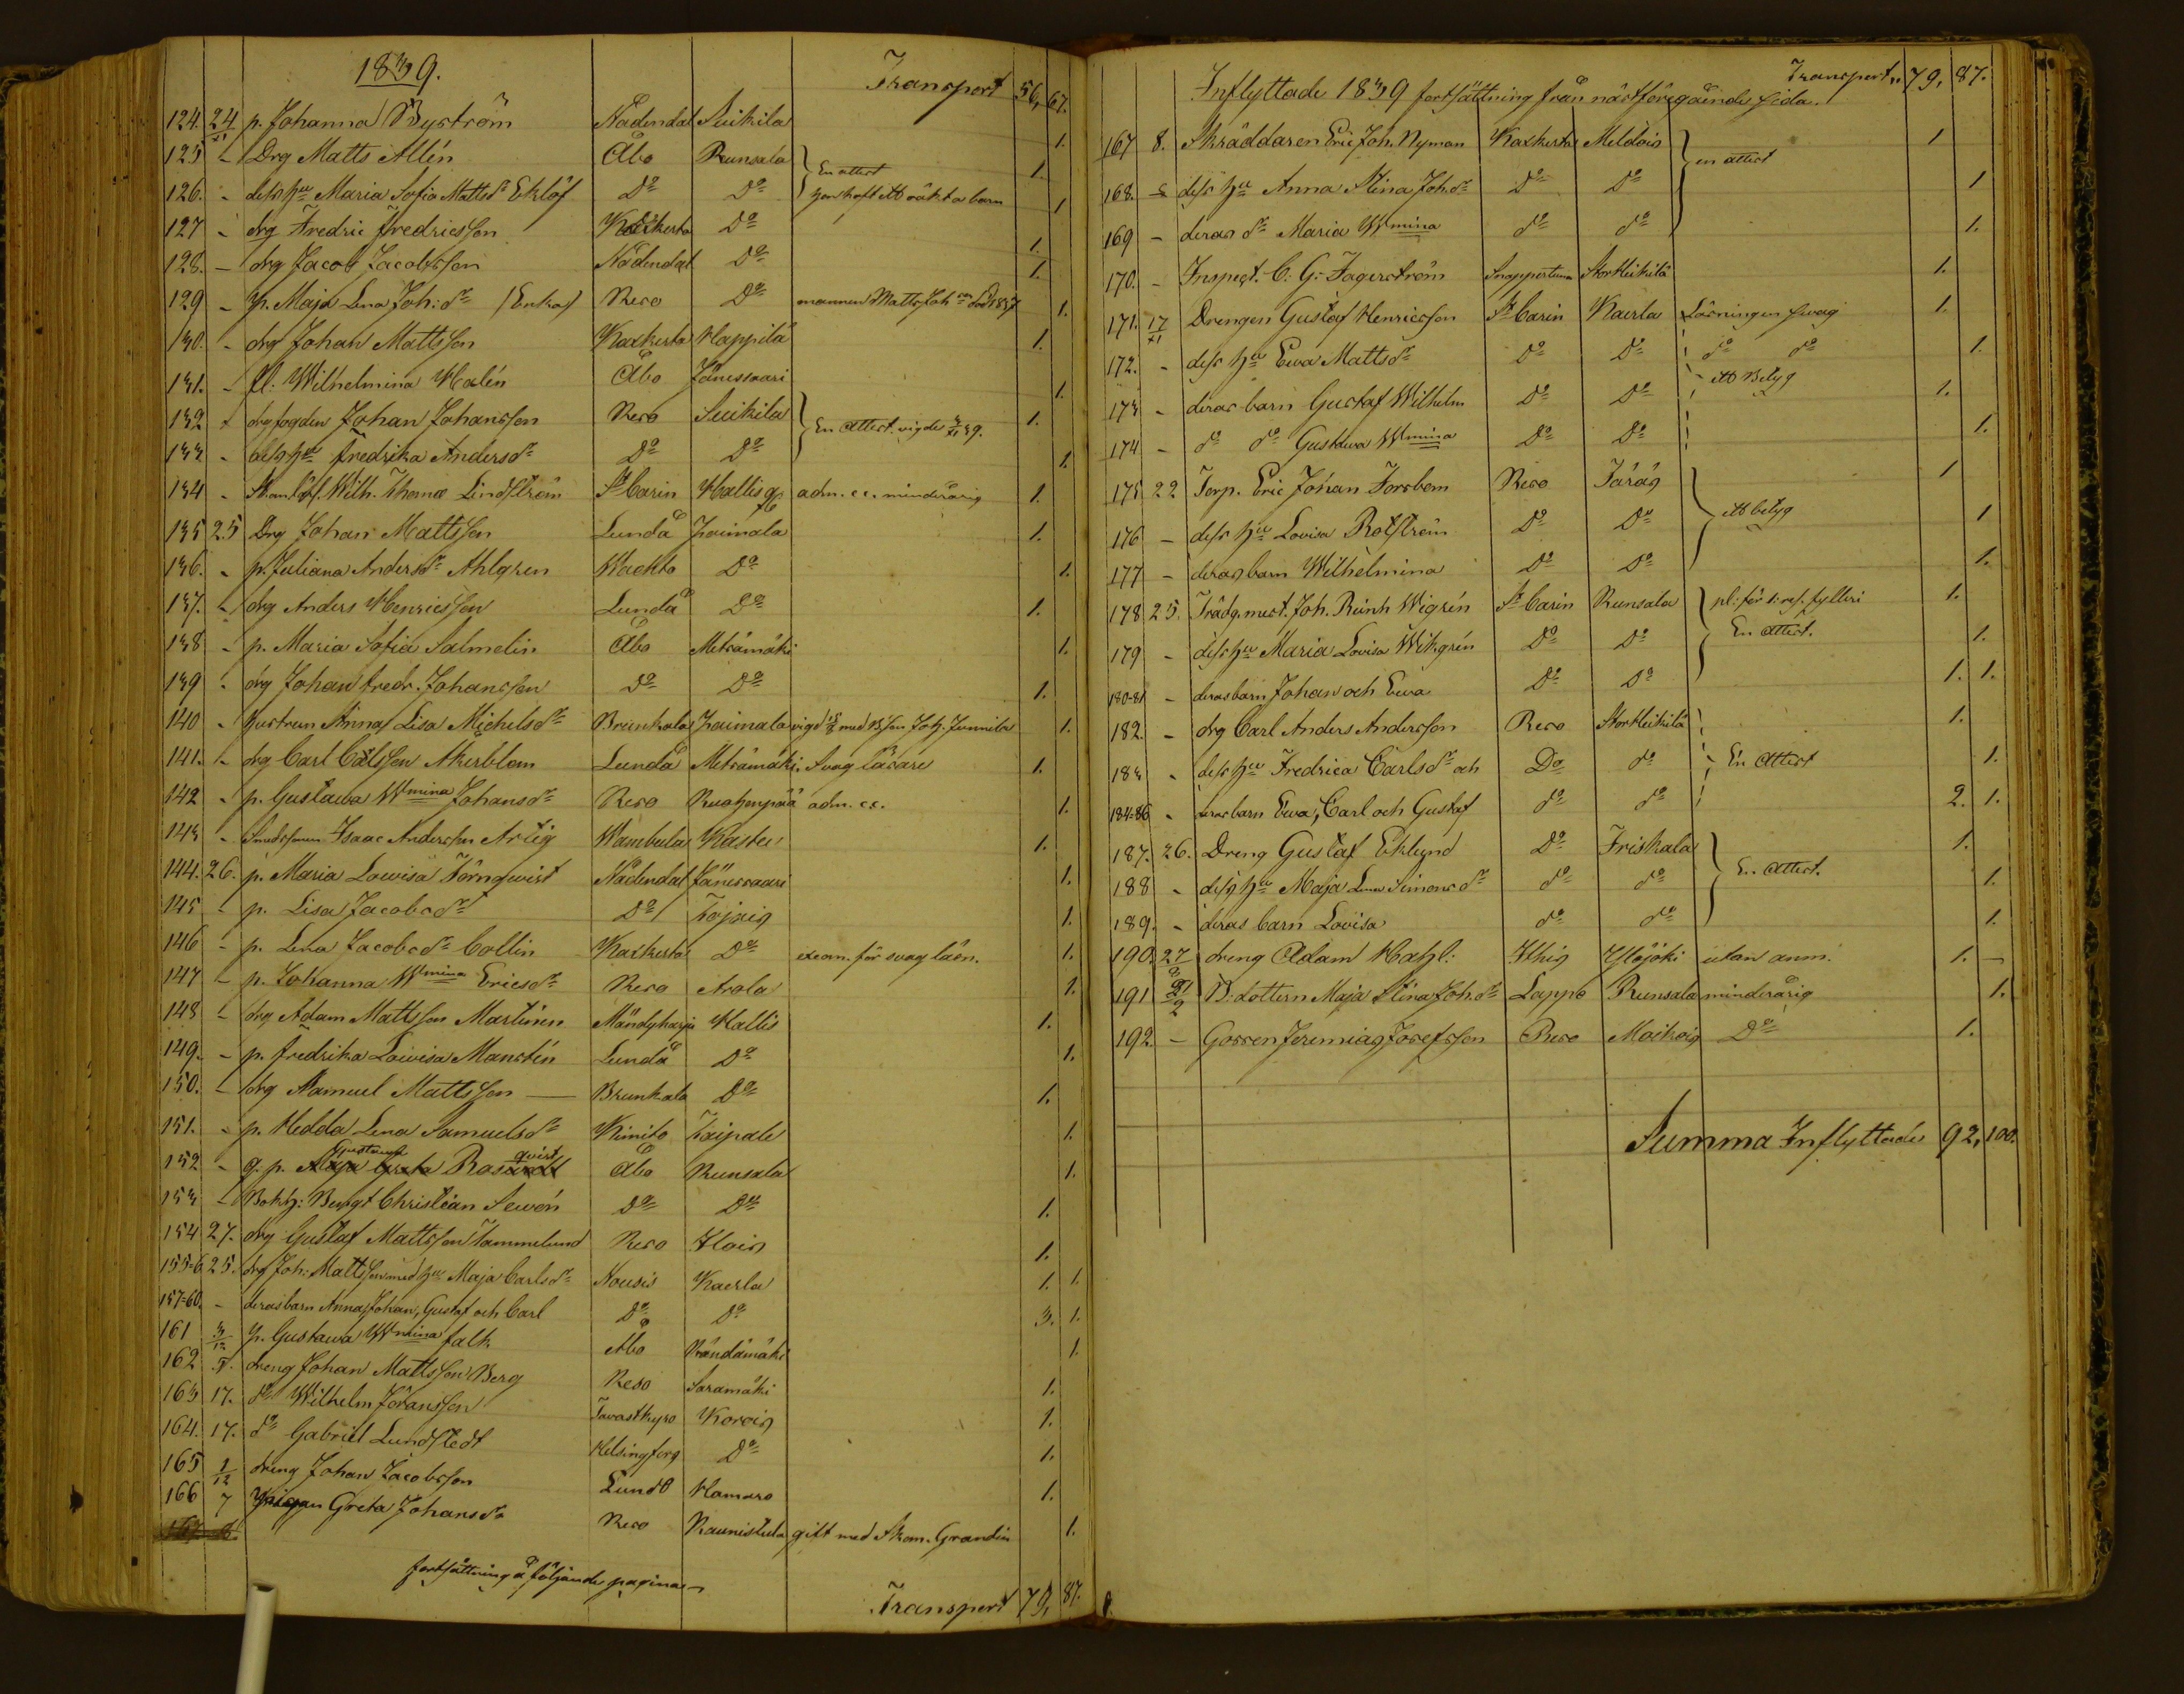 1839.
Transport 56, 67.
124. 24/XI p. Johanna Byström Nådendal Suikila 1.
125 - Drg Matts Allén Åbo Runsala En attest 1.
126. - dess hu Maria Sofia Mattsdr Eklöf Do Do han haft ett oäkta barn 1
127 - drg Fredric Fredricsson Kaxkerta Do 1.
128. - drg Jacob Jacobsson Nådendal Do 1.
129 - p. Maja Lena Joh:dr (Enka) Reso Do mannen Matts Johsson död 1837 1.
130. - drg Johan Mattsson Kaxkerta Happila 1.
131. - fl: Wilhelmina Halén Åbo Jänessaari 1.
132 - drgfogden Johan Johansson Reso Suikila En attest. vigde 1.
133 - dess hu Fredrika Andersdr Do Do 1.
134 - Wilh. Thomas Lindström St Carin Hallis adm. c.c. minderårig 1.
135 25 Drg Johan Mattsson Lundå Jraimala 1.
136. - p. Juliana Andersdr Ahlgren Wachto Do 1.
137. - drg Anders Henricsson Lundå Do 1.
138 - p. Maria Sofia Salmelin Åbo Metsämäki 1.
139 - drg Johan Fredr. Johansson Do Do 1.
140 - hustrun Anna Lisa Michelsdr Brunkala Jraimala vigd med 1.
141. - drg Carl Carlsson Åkerblom Lundå Metsämäki Svag läsare 1.
142 - p. Gustawa Wmina Johansdr Reso Ruohonpää adm. c.c. 1.
143 - Isaac Andersson Artig Wambula Kastu 1.
144. 26. p. Maria Lowisa Törnqwist Nådendal Jänessaari 1.
145 - p. Lisa Jacobsdr Do Tojais 1.
146 - p. Lena Jacobsdr Collin Kaxkerta Do exam. för svag läsn. 1.
147 - p. Johanna Wmina Ericsdr Reso Arola 1.
148 - drg Adam Mattsson Martinen Mändyharju Hallis 1.
149. - p. Fredrika Lowisa Manstén Lundå Do 1.
150. - drg Samuel Mattsson Brunkala Do 1.
151. - p. Hedda Lena Samuelsdr Kimito Taipale 1.
152 - g. p. Gustava Rosqvist Åbo Runsala 1.
153 - Bokh: Bengt Christian Sewón Do Do 1.
154 27. drg Gustaf Mattsson Tammelund Reso Ilois 1.
155=6 25. drg Joh: Mattsson med hu Maja Carlsdr Nousis Kaerla 1. 1.
157=60. - deras barn Anna, Johan, Gustaf och Carl Do Do 3. 1.
161 3/12 p. Gustawa Wmina Falk Abo Räntämäki 1.
162 5. dreng Johan Mattsson Berg Reso Saramäki 1.
163 17. do Wilhelm Göransson Tavastkyro Korois 1.
164. 17. do Gabriel Lundstedt Helsingfors Do 1.
165 1/12 dreng Johan Jacobsson Lundo Hamaro 1.
166 7 Pigan Greta Johansdr Reso Raunistula gift med Skom. Grandin 1.
fortsättning å följande pagina
Transport 79, 87.
Transport.. 79, 87.
Inflyttade 1839 fortsättning från nästföregående sida.
167 8. Skräddaren Eric Joh. Nyman Kaxkerta Meldois en attest 1
168. 8 dess hu Anna Stina Joh.dr Do Do 1
169 - deras dr Maria Wmina do do 1.
170. - Inspect. C. G. Fagerström Snappertuna StorHeikilä 1.
171. 17/XI Drengen Gustaf Henricsson St Carin Kaerla Läsningen svag 1.
172. - dess hu Ewa Mattsdr Do Do do do 1.
173 - deras barn Gustaf Wilhelm Do Do ett Betyg 1.
174 - do do Gustawa Wmina Do Do 1.
175 22 Torp. Eric Johan Forsbom Reso Järäs ett betyg 1
176 - dess hu Lovisa Rotström Do Do 1
177 - deras barn Wilhelmina Do Do 1.
178 25. Trädg.mest. Joh. Reinh Wigrén St Carin Runsala pl: för 1: res. fylleri 1.
179 - dess hu Maria Lovisa Wikgrén Do Do En attest. 1.
180=81 - deras barn Johan och Ewa Do Do 1. 1.
182. - drg Carl Anders Andersson Reso StorHeikilä 1.
183 - dess hu Fredrica Carlsdr och Do do En attest 1.
184=86 - deras barn Ewa, Carl och Gustaf do do 2. 1.
187. 26. Dreng Gustaf Eklund Do Friskala En attest. 1.
188 - dess hu Maja Lena Simonsdr do do 1.
189. - deras barn Lovisa do do 1.
190. 27 dreng Adam Mats: Ithis Ylijoki utan anm. 1. -
191 D:dottern Maja Stina Joh.dr Lappo Runsala minderårig 1.
192. - Gossen Jeremias Josefsson Reso Moikois Do 1.
Summa Inflyttade 92, 100.